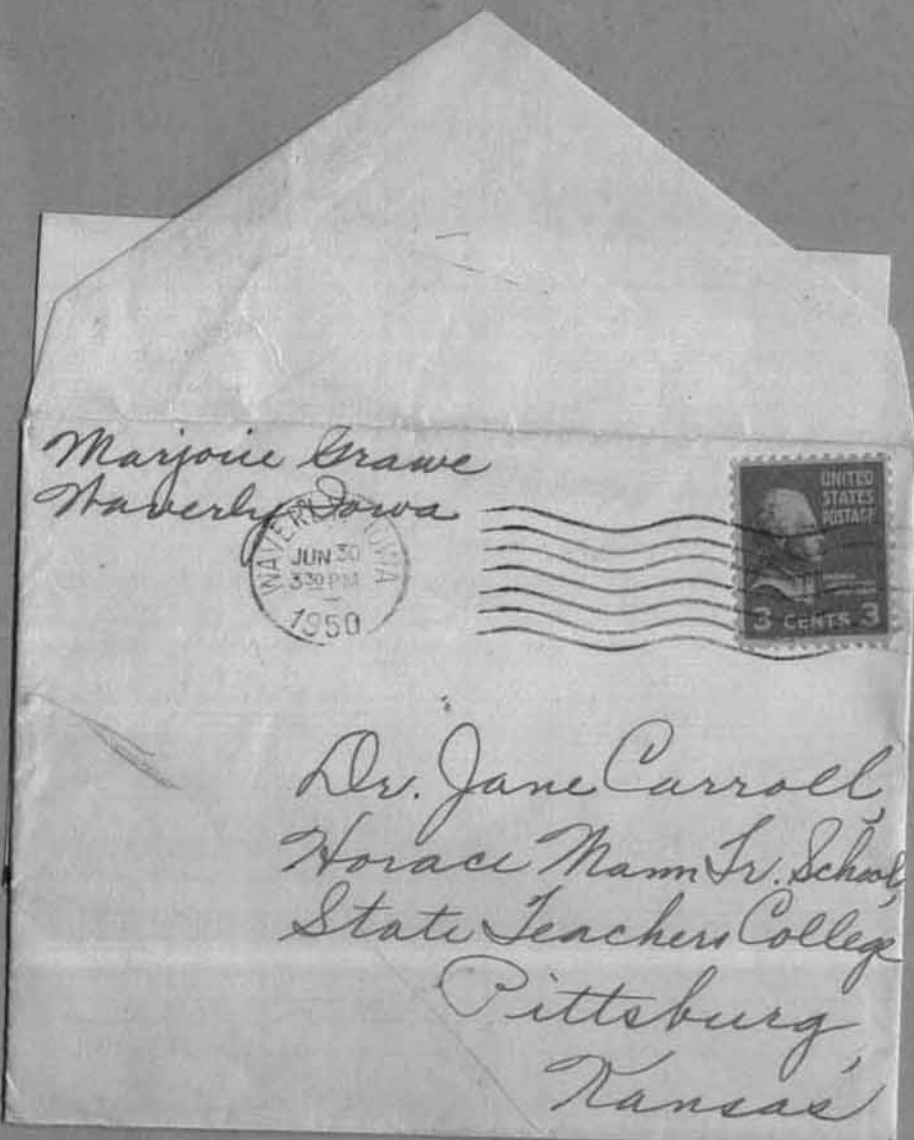 Marjorie Grawe
Waverly Iowa
WAVERLY IOWA
JUN 30
3 30 PM
1950
UNITED
STATES
POSTAGE
3 CENTS 3
Dr. Jane Carroll,
Horace Mann Tr. School,
State Teachers College
Pittsburg,
Kansas